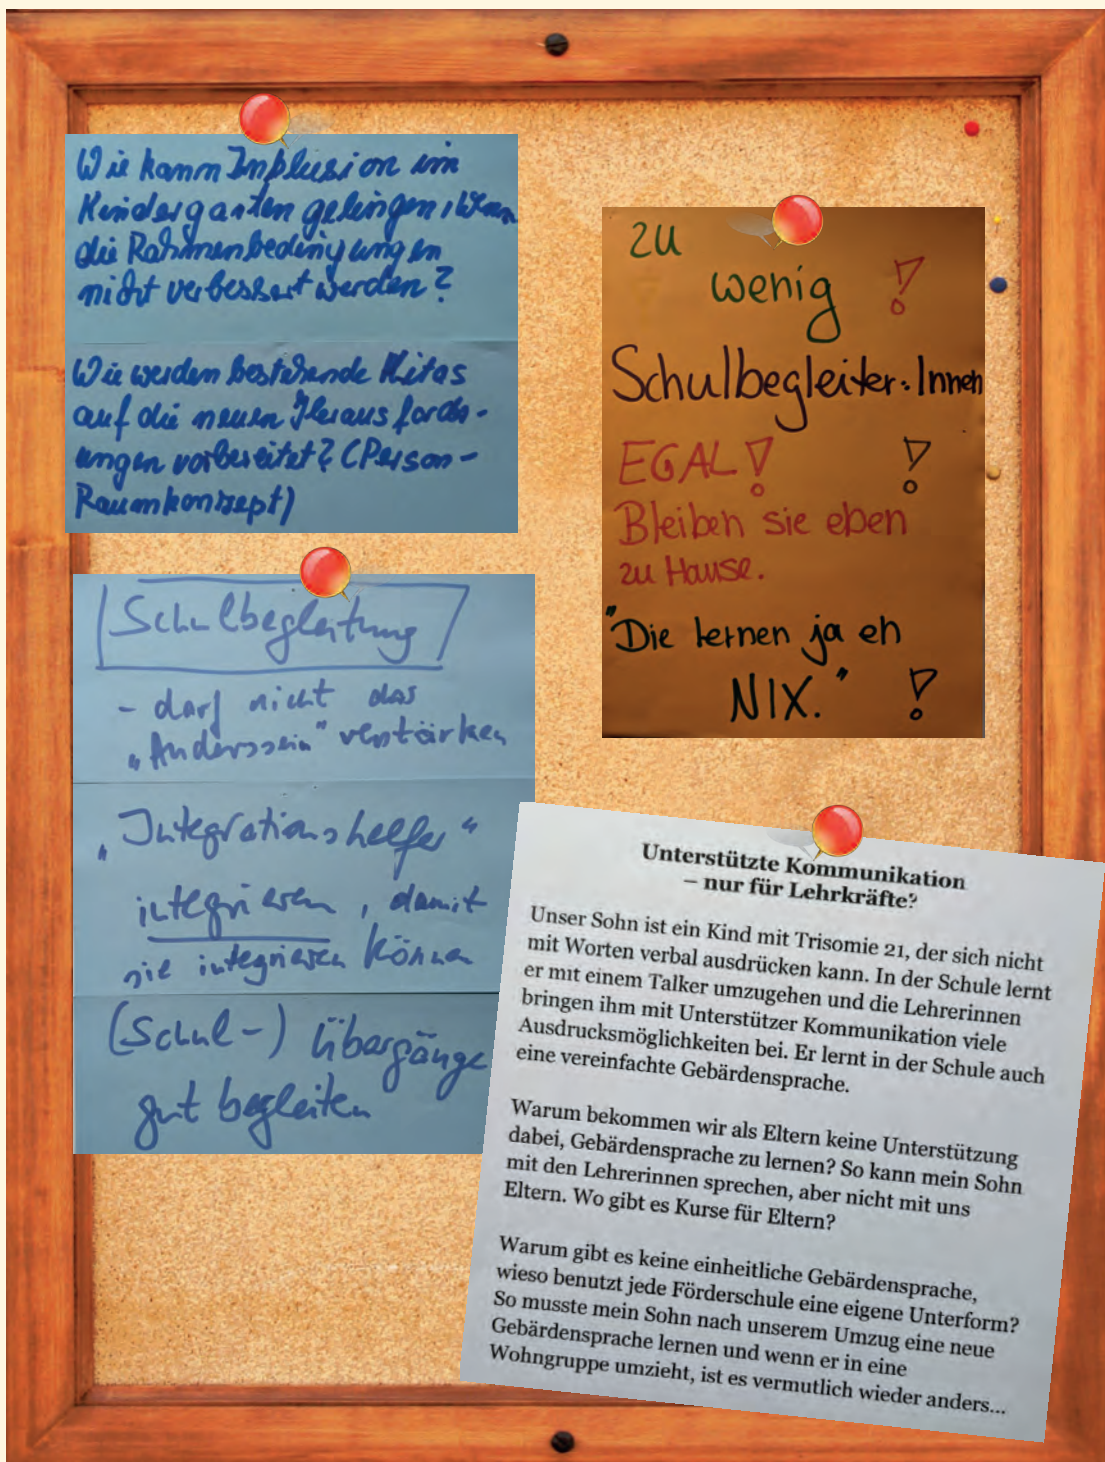 Wie kann Inklusion im
Kindergarten gelingen, wenn
die Rahmenbedingungen
nicht verbessert werden?
Wie werden bestehende Kitas
auf die neuen Herausforder-
ungen vorbereitet? (Person-
Raumkonzept)
zu
wenig !
Schulbegleiter:Innen
EGAL! !
Bleiben sie eben
zu Hause.
"Die lernen ja eh
NIX." !
Schulbegleitung
- darf nicht das
„Anderssein" verstärken
„Integrationshelfer"
integrieren, damit
sie integrieren können
(Schul-) Übergänge
gut begleiten
Unterstützte Kommunikation
– nur für Lehrkräfte?
Unser Sohn ist ein Kind mit Trisomie 21, der sich nicht
mit Worten verbal ausdrücken kann. In der Schule lernt
er mit einem Talker umzugehen und die Lehrerinnen
bringen ihm mit Unterstützer Kommunikation viele
Ausdrucksmöglichkeiten bei. Er lernt in der Schule auch
eine vereinfachte Gebärdensprache.
Warum bekommen wir als Eltern keine Unterstützung
dabei, Gebärdensprache zu lernen? So kann mein Sohn
mit den Lehrerinnen sprechen, aber nicht mit uns
Eltern. Wo gibt es Kurse für Eltern?
Warum gibt es keine einheitliche Gebärdensprache,
wieso benutzt jede Förderschule eine eigene Unterform?
So musste mein Sohn nach unserem Umzug eine neue
Gebärdensprache lernen und wenn er in eine
Wohngruppe umzieht, ist es vermutlich wieder anders...